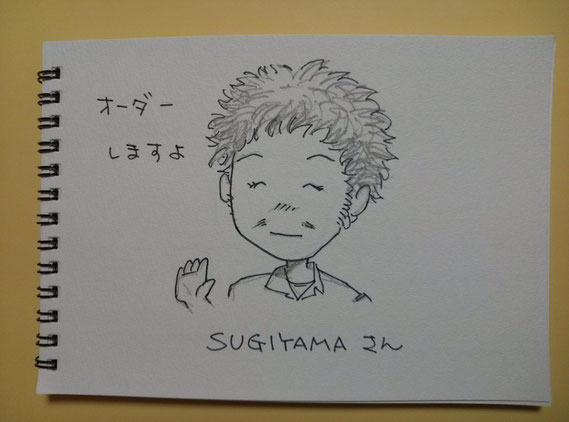 オーダー
しますよ
SUGIYAMA さん